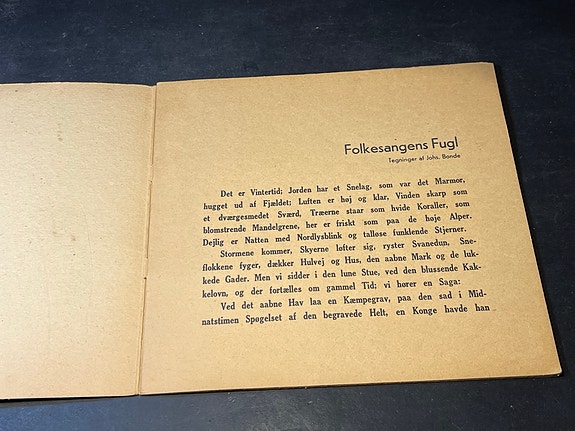 Folkesangens Fugl
Tegninger af Johs. Bonde
Det er Vintertid; Jorden har et Snelag, som var det Marmor,
hugget ud af Fjeldet; Luften er høj og klar, Vinden skarp som
et dværgesmedet Sværd, Træerne staar som hvide Koraller, som
blomstrende Mandelgrene, her er friskt som paa de høje Alper.
Dejlig er Natten med Nordlysblink og talløse funklende Stjerner.
Stormene kommer, Skyerne løfter sig, ryster Svanedun, Sne-
flokkene fyger, dækker Hulvej og Hus, den aabne Mark og de luk-
kede Gader. Men vi sidder i den lune Stue, ved den blussende Kak-
kelovn, og der fortælles om gammel Tid; vi hører en Saga:
Ved det aabne Hav laa en Kæmpegrav, paa den sad i Mid-
natstimen Spøgelset af den begravede Helt, en Konge havde han